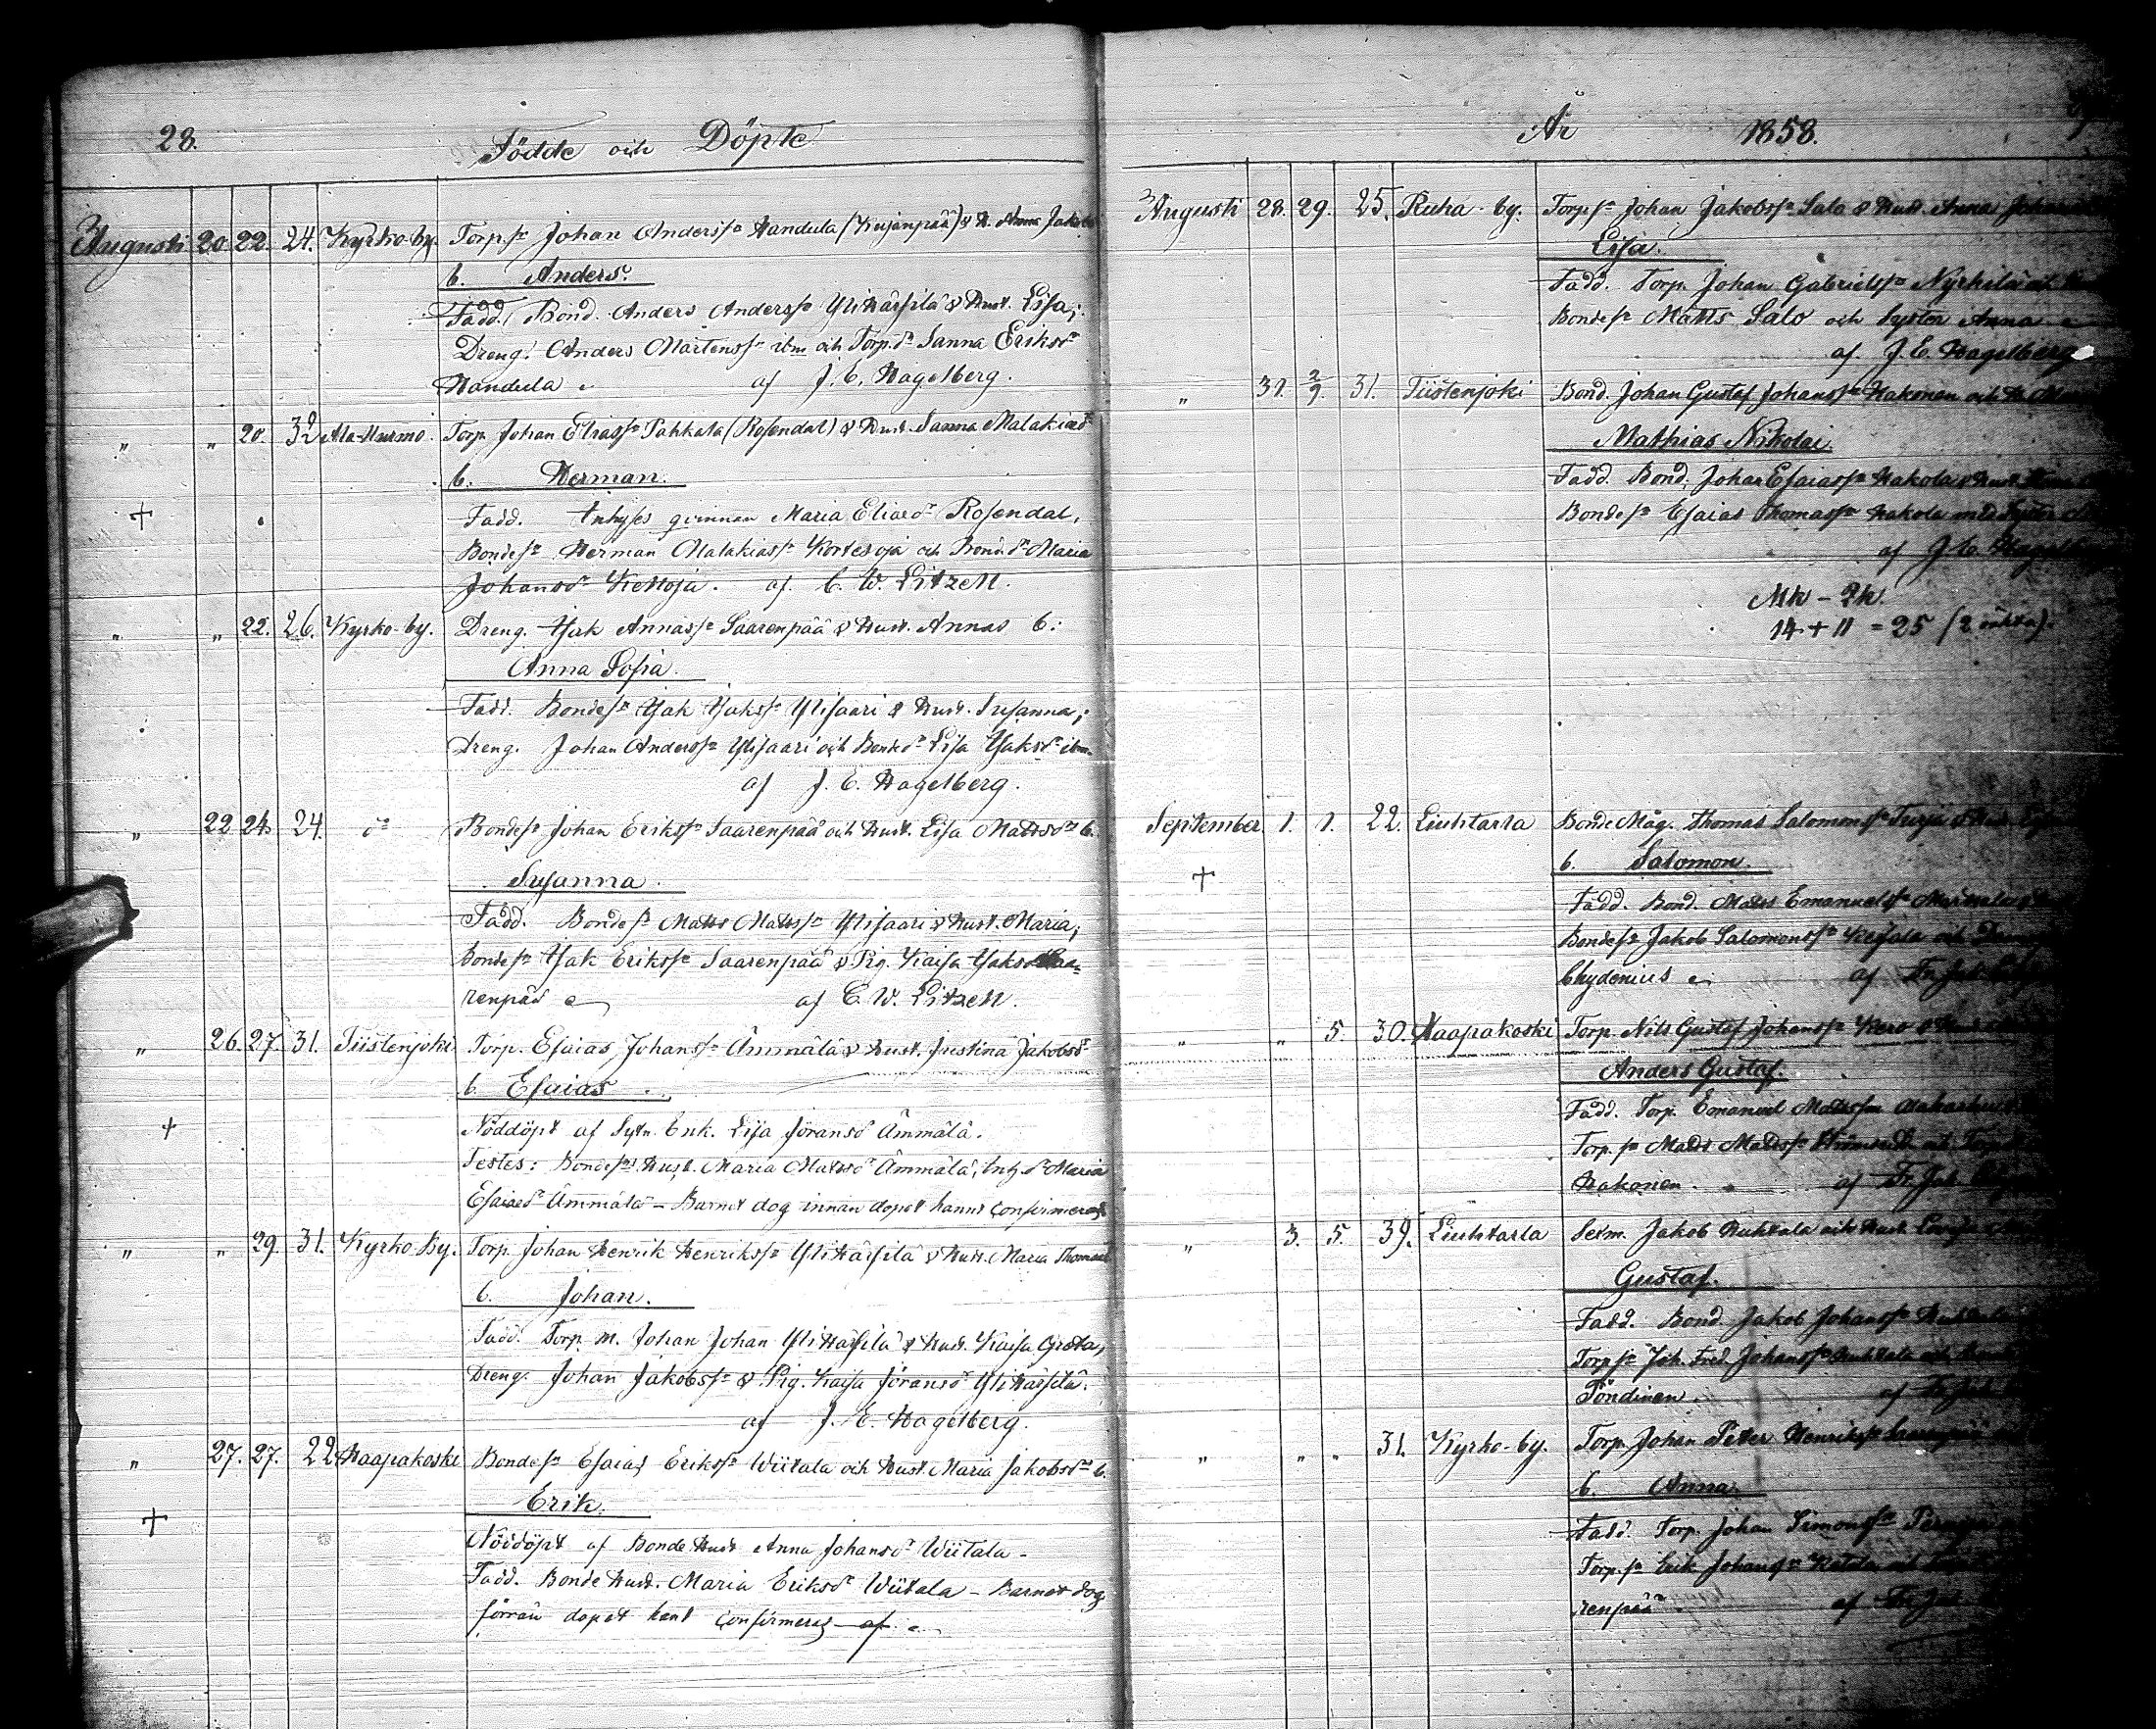 28.
Födde och Döpte
Augusti 20. 22. 24. Kyrko-by. Torp.sn Johan Anderssn Handula (Kujanpää) & H. Anna Jakobsd
b. Anders.
Fadd. Bond. Anders Anderssn Ylihärsilä & Hust. Lisa;
Dreng. Anders Mårtenssn ibm och Torp.dr Sanna Eriksdr
Handula af J. E. Hagelberg.
" " 20. 32 Ala-Hurmo. Torp. Johan Eliassn Pakkala (Rosendal) & Hust. Sanna Malakiasdr
b. Herman.
† Fadd. Inhyses qvinnan Maria Eliasdr Rosendal,
Bondesn Herman Malakiassn Kortesoja och Bond.dr Maria
Johansdr Kettoja. af C. W. Litzell.
" " 22. 26. Kyrko-by. Dreng. Isak Annassn Saarenpää & Hust. Annas b:
Anna Sofia.
Fadd. Bondesn Isak Isakssn Ylisaari & Hust. Susanna;
Dreng. Johan Anderssn Ylisaari och Bondedr Lisa Isaksdr ibm
af J. E. Hagelberg.
" 22 24 24. do Bondesn Johan Erikssn Saarenpää och Hust. Lisa Mattsdr b.
Susanna.
Fadd. Bondesn Matts Mattssn Ylisaari & Hust. Maria;
Bondesn Isak Erikssn Saarenpää & Pig. Kaisa Isaksd Saa-
renpää af C. W. Litzell.
" 26. 27. 31. Tiistenjoki Torp. Esaias Johanssn Ämmälä & Hust. Justina Jakobsdr
b. Esaias.
† Nöddöpt af Sytn. Enk. Lisa Jöransdr Ämmälä.
Testes: Bondesns Hust. Maria Mattsdr Ämmälä, Inh.dr Maria
Esaiasdr Ämmälä – Barnet dog innan dopet hann confirmeras
" " 29. 31. Kyrko By. Torp. Johan Henrik Henrikssn Ylihärsilä & Hust. Maria Thomasd
b. Johan.
Fadd. Torp. m. Johan Johan Ylihärsilä & Hust. Kaisa Greta;
Dreng. Johan Jakobssn & Pig. Kaisa Jöransdr Ylihärsilä.
af J. E. Hagelberg.
" 27. 27. 22 Haapakoski Bondesn Esaias Erikssn Wiitala och Hust. Maria Jakobsdr b.
Erik.
† Nöddöpt af Bonde Hust Anna Johansdr Wiitala –
Fadd. Bonde Hust. Maria Eriksdr Wiitala – Barnet dog
förrän dopet hant confirmeras af
År 1858.
Augusti 28. 29. 25. Ruha-by. Torp.sn Johan Jakobssn Salo & Hust. Anna
Lisa.
Fadd. Torp. Johan Gabrielssn Nyrhilä och
Bondesn Matts Salo och Syster Anna
af J. E. Hagelberg
" 31. 2/9. 31. Tiistenjoki Bond. Johan Gustaf Johanssn Hakonen och H.
Mathias Nikolai.
Fadd. Bond. Johan Esaiassn Hakola & Hust.
Bondesn Esaias Thomassn Hakola med Syster
af J. E. Hagelberg
Mk – Qk.
14 + 11 = 25 (2 oäkta).
September 1. 1. 22. Liuhtarla Bonde Måg. Thomas Salomonssn Turja & Hust.
b. Salomon.
† Fadd. Bond. Matts Emanuelssn
Bondesn Jakob Salomonssn och
Chydenius af Fr. Joh.
" " 5. 30. Haapakoski Torp. Nils Gustaf Johanssn Kero & Hust.
Anders Gustaf.
Fadd. Torp. Emanuel Mattsson
Torp.sn Matts Mattssn och Torp.
Hakonen. af Fr. Joh.
" 3. 5. 39. Liuhtarla Sexm. Jakob Huhtala och Hust.
Gustaf.
Fadd. Bond. Jakob Johanssn Huhtala
Torp.sn Joh. Fred. Johanssn Huhtala och
Pöndinen. af Fr. Joh.
" " " 31. Kyrko-by. Torp. Johan Peter Henrikssn Saarenpää
b. Anna.
Fadd. Torp. Johan Simonssn
Torp.sn Erik Johanssn och
renpää af Fr. Joh.